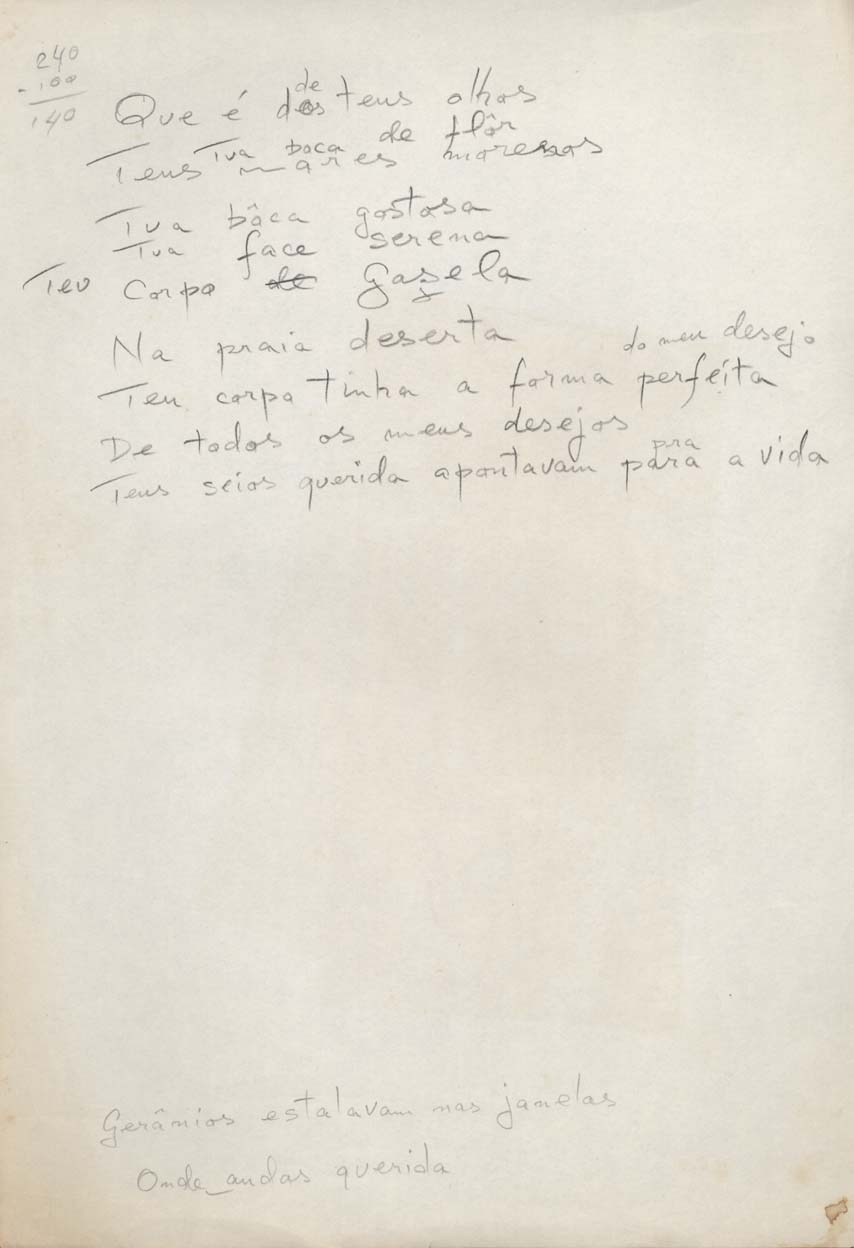 240
- 100
140
de
Que é dos teus olhos
Tua boca de flôr
Teus mares morenos
Tua bôca gostosa
Tua face serena
Teu corpo de gazela
Na praia deserta
do meu desejo
Teu corpo tinha a forma perfeita
De todos os meus desejos
pra
Teus seios querida apontavam para a vida
Gerânios estalavam nas janelas
Onde andas querida